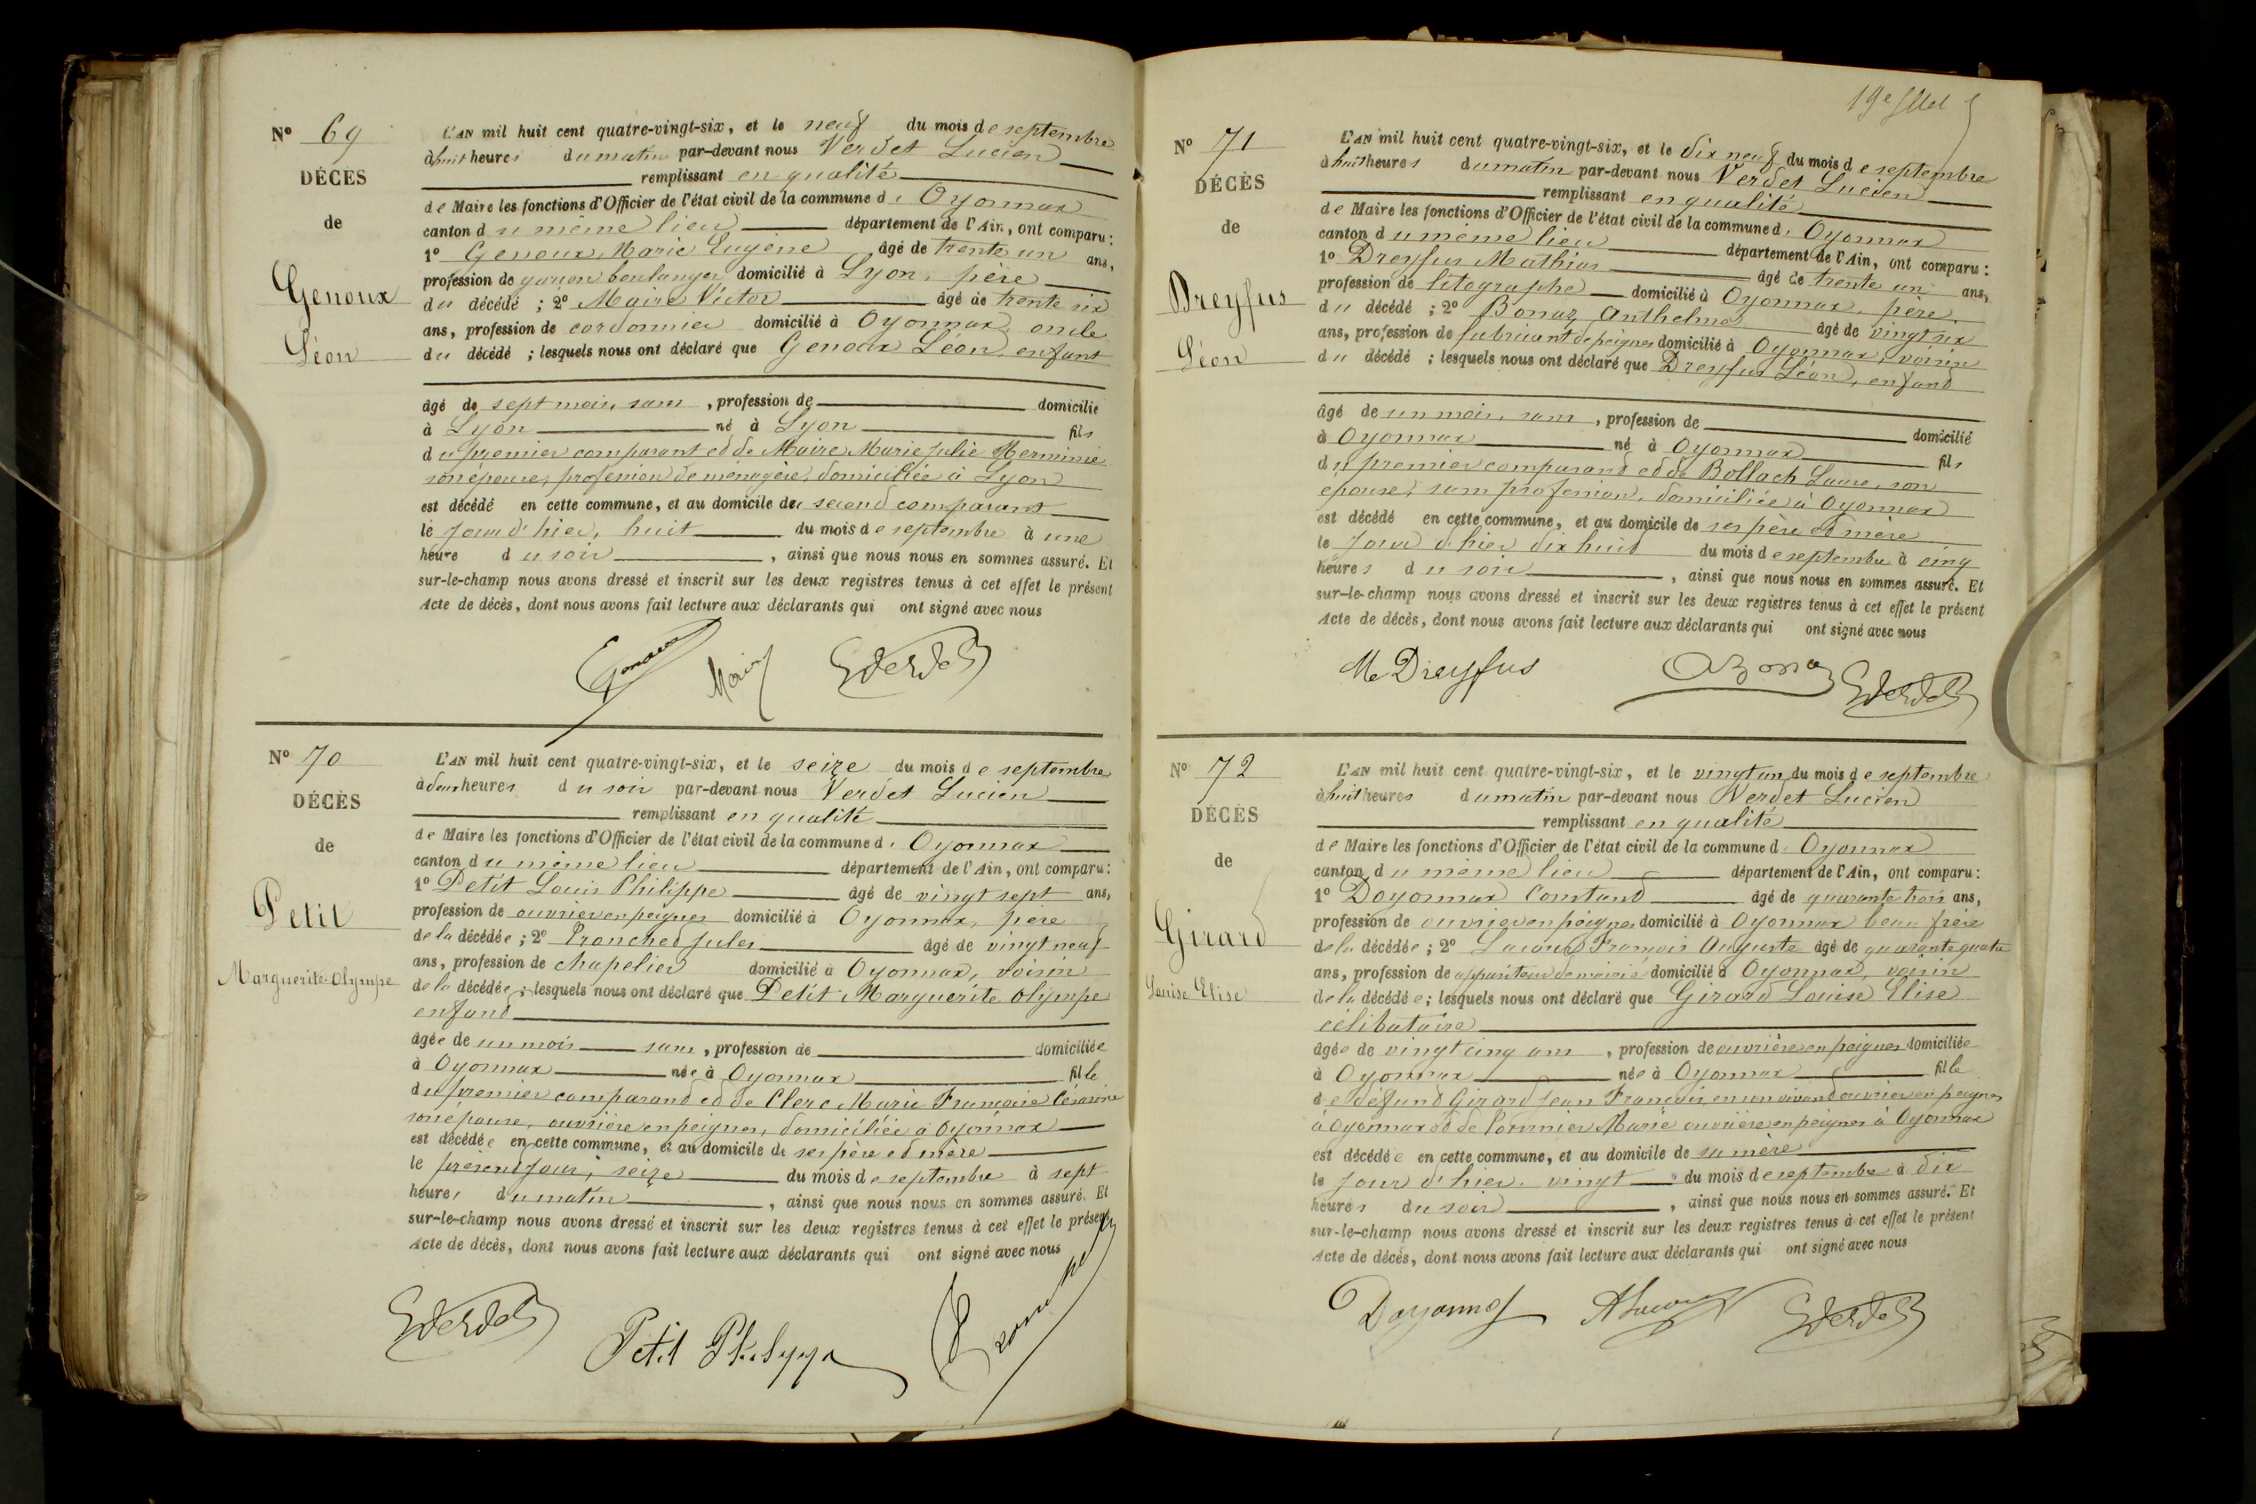 Nº 69
DÉCÈS
de
Genoux
Léon
L'AN mil huit cent quatre-vingt-six, et le neuf du mois de septembre
à huit heures du matin par-devant nous Verdet Lucien
remplissant en qualité
de Maire les fonctions d'Officier de l'état civil de la commune d' Oyonnax
canton du même lieu département de l'Ain, ont comparu:
1º Genoux Marie Eugène âgé de trente un ans,
profession de garçon boulanger domicilié à Lyon, père
du décédé ; 2º Maire Victor âgé de trente six
ans, profession de cordonnier domicilié à Oyonnax, oncle
du décédé ; lesquels nous ont déclaré que Genoux Léon, enfant
âgé de sept mois, sans , profession de domicilié
à Lyon né à Lyon fils
du premier comparant et de Maire Marie Julie Herminie
son épouse, profession de ménagère, domiciliée à Lyon
est décédé en cette commune, et au domicile du second comparant
le jour d'hier, huit du mois de septembre à une
heure du soir , ainsi que nous nous en sommes assuré. Et
sur-le-champ nous avons dressé et inscrit sur les deux registres tenus à cet effet le présent
Acte de décès, dont nous avons fait lecture aux déclarants qui ont signé avec nous
Genoux Maire Verdet
Nº 70
DÉCÈS
de
Petit
Marguerite Olympe
L'AN mil huit cent quatre-vingt-six, et le seize du mois de septembre
à deux heures du soir par-devant nous Verdet Lucien
remplissant en qualité
de Maire les fonctions d'Officier de l'état civil de la commune d' Oyonnax
canton du même lieu département de l'Ain, ont comparu:
1º Petit Louis Philippe âgé de vingt sept ans,
profession de ouvrier en peignes domicilié à Oyonnax, père
de la décédée ; 2º Tranchet Jules âgé de vingt neuf
ans, profession de chapelier domicilié à Oyonnax, voisin
de la décédée ; lesquels nous ont déclaré que Petit Marguerite Olympe
enfant
âgée de un mois sans , profession de domiciliée
à Oyonnax née à Oyonnax fille
du premier comparant et de Clerc Marie Françoise Césarine
son épouse, ouvrière en peignes, domiciliée à Oyonnax
est décédée en cette commune, et au domicile de ses père et mère
le présent jour, seize du mois de septembre à sept
heures du matin , ainsi que nous nous en sommes assuré. Et
sur-le-champ nous avons dressé et inscrit sur les deux registres tenus à cet effet le présent
Acte de décès, dont nous avons fait lecture aux déclarants qui ont signé avec nous
Verdet Petit Philippe
19e
Nº 71
DÉCÈS
de
Dreyfus
Léon
L'AN mil huit cent quatre-vingt-six, et le dix neuf du mois de septembre
à huit heures du matin par-devant nous Verdet Lucien
remplissant en qualité
de Maire les fonctions d'Officier de l'état civil de la commune d' Oyonnax
canton du même lieu département de l'Ain, ont comparu:
1º Dreyfus Mathias âgé de trente un ans,
profession de litographe domicilié à Oyonnax, père
du décédé ; 2º Bonaz Anthelme âgé de vingt six
ans, profession de fabricant de peignes domicilié à Oyonnax, voisin
du décédé ; lesquels nous ont déclaré que Dreyfus Léon, enfant
âgé de un mois, sans , profession de domicilié
à Oyonnax né à Oyonnax fils
du premier comparant et de Bollach Laure, son
épouse, sans profession, domiciliée à Oyonnax
est décédé en cette commune, et au domicile de ses père et mère
le jour d'hier dix huit du mois de septembre à cinq
heures du soir , ainsi que nous nous en sommes assuré. Et
sur-le-champ nous avons dressé et inscrit sur les deux registres tenus à cet effet le présent
Acte de décès, dont nous avons fait lecture aux déclarants qui ont signé avec nous
M Dreyfus A Bonaz Verdet
Nº 72
DÉCÈS
de
Girard
Louise Elise
L'AN mil huit cent quatre-vingt-six, et le vingt un du mois de septembre
à huit heures du matin par-devant nous Verdet Lucien
remplissant en qualité
de Maire les fonctions d'Officier de l'état civil de la commune d' Oyonnax
canton du même lieu département de l'Ain, ont comparu:
1º Doyonnax Constant âgé de quarante trois ans,
profession de ouvrier en peignes domicilié à Oyonnax beau frère
de la décédée ; 2º François Auguste âgé de quarante quatre
ans, profession de appariteur de mairie domicilié à Oyonnax, voisin
de la décédée ; lesquels nous ont déclaré que Girard Louise Elise
célibataire
âgée de vingt cinq ans , profession de ouvrière en peignes domiciliée
à Oyonnax née à Oyonnax fille
de défunt Girard Jean François en son vivant ouvrier en peignes
à Oyonnax et de Marie ouvrière en peignes à Oyonnax
est décédée en cette commune, et au domicile de sa mère
le jour d'hier, vingt du mois de septembre à dix
heures du soir , ainsi que nous nous en sommes assuré. Et
sur-le-champ nous avons dressé et inscrit sur les deux registres tenus à cet effet le présent
Acte de décès, dont nous avons fait lecture aux déclarants qui ont signé avec nous
Verdet